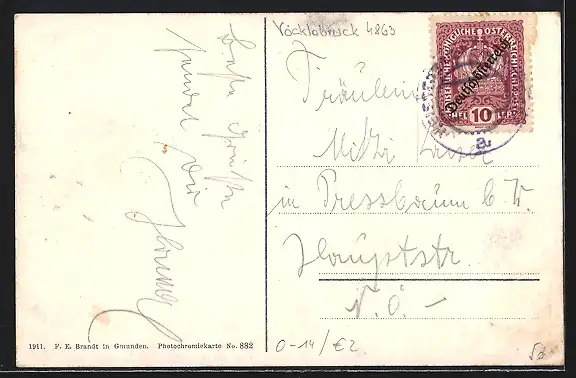 Vöcklabruck 4863
Beste Grüße
sendet Dir
Fräulein
Mitzi
in Pressbaum b. W.
Hauptstr.
N.Ö. –
KAISERLICHE KÖNIGLICHE ÖSTERREICHISCHE POST
Deutschösterreich
HELLER 10
a
1911. F. E. Brandt in Gmunden. Photochromiekarte No. 882
0-14/€2